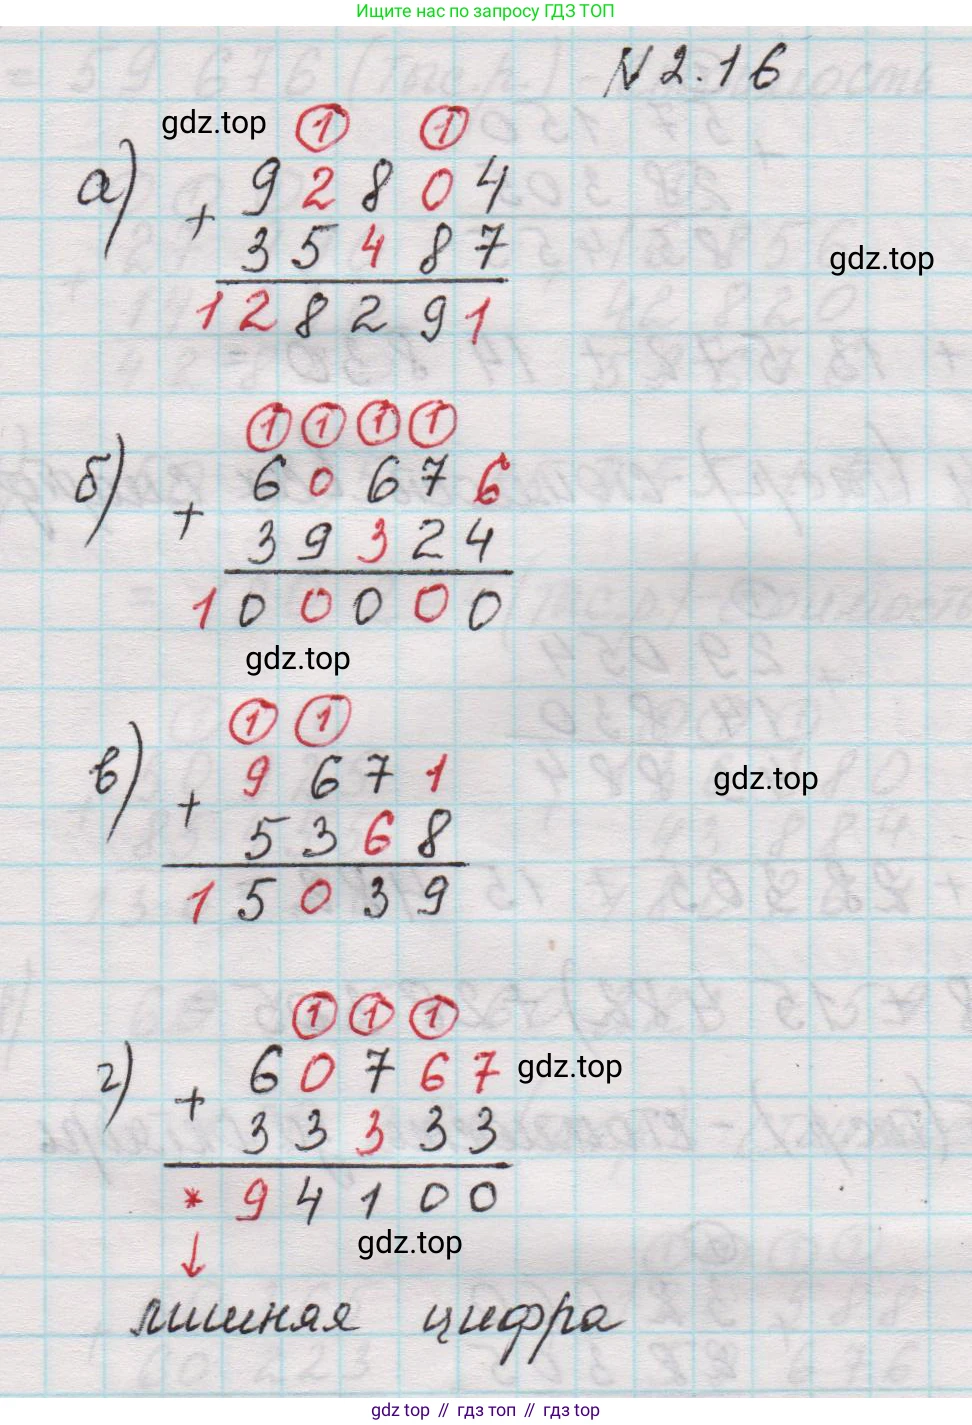 Ищите нас по запросу ГДЗ ТОП
N 2.16
gdz.top
1 1
а) 92804
+ 35487
128291
gdz.top
1 1 1 1
б) 60676
+ 39324
100000
gdz.top
1 1
в) 9671
+ 5368
15039
gdz.top
1 1 1
г) 60767
+ 33333
* 94100
gdz.top
gdz.top
↓
лишняя цифра
gdz.top // гдз топ // гдз.top